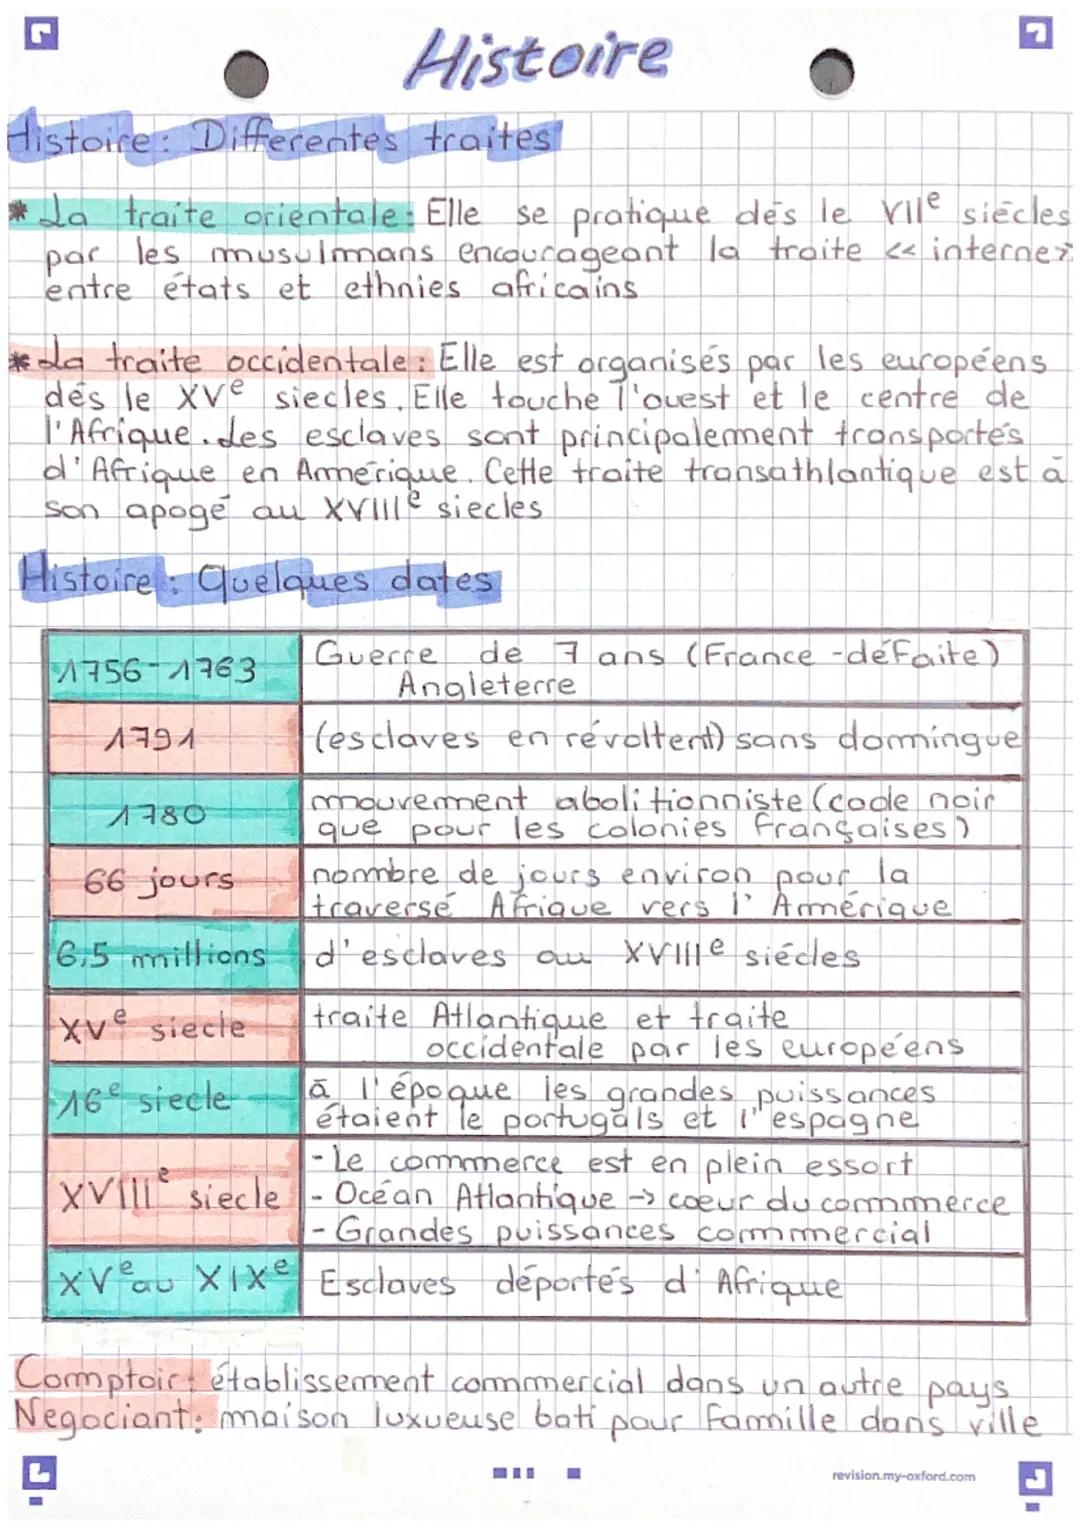 Histoire
Histoire : Differentes traites
* La traite orientale : Elle se pratique dés le VIIe siécles
par les musulmans encourageant la traite << interne>>
entre états et ethnies africains
* La traite occidentale : Elle est organisés par les européens
dés le XVe siecles. Elle touche l'ouest et le centre de
l'Afrique. Les esclaves sont principalement transportés
d'Afrique en Amérique. Cette traite transathlantique est à
son apogé au XVIIIe siecles
Histoire : Quelques dates
1756-1763 Guerre de 7 ans (France - défaite)
Angleterre
1791 (esclaves en révoltent) sans domingue
1780 mouvement abolitionniste (code noir
que pour les colonies françaises)
66 jours nombre de jours environ pour la
traversé Afrique vers l'Amérique
6,5 millions d'esclaves au XVIIIe siécles
XVe siecle traite Atlantique et traite
occidentale par les européens
16e siecle à l'époque les grandes puissances
étaient le portugals et l'espagne
XVIIIe siecle - Le commerce est en plein essort
- Océan Atlantique -> cœur du commerce
- Grandes puissances commercial
XVe au XIXe Esclaves déportés d'Afrique
Comptoir : établissement commercial dans un autre pays
Negociant : maison luxueuse bati pour famille dans ville
revision.my-oxford.com